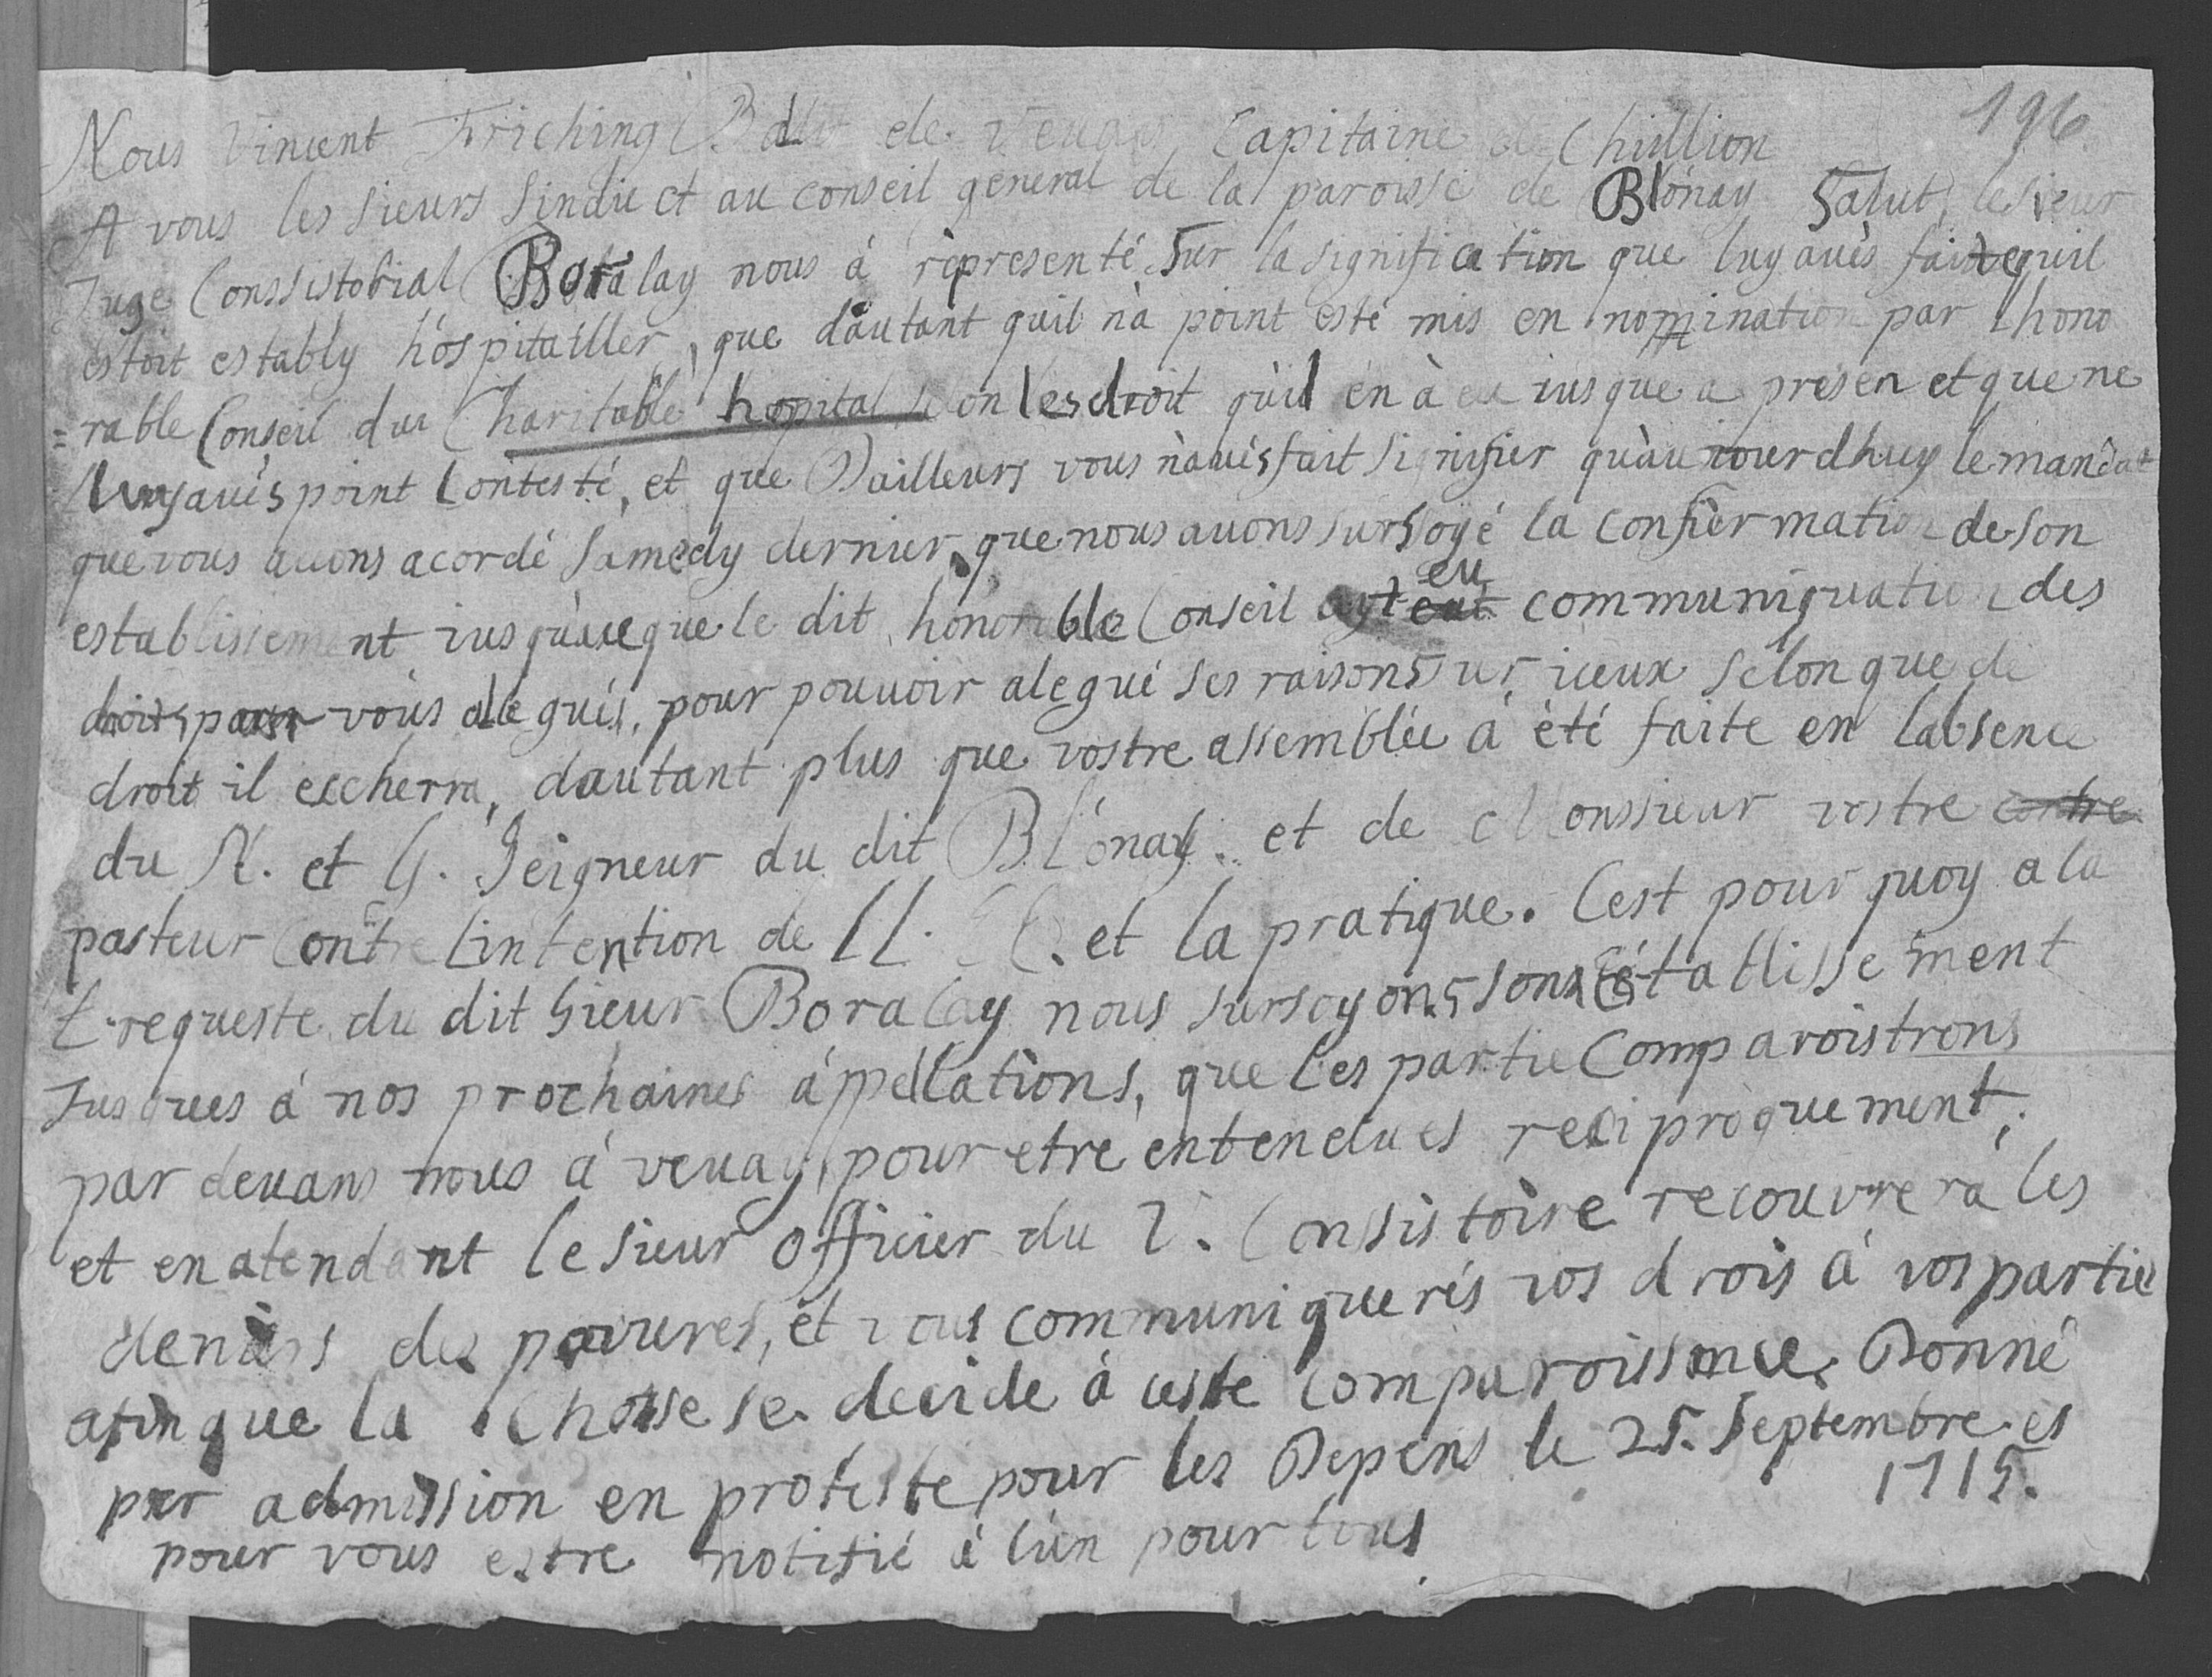 196
Nous Vincent Frichingt Ballif de Veuay Capitaine de Chillion
A vous les sieurs sindic et au conseil general de la paroisse de Blónay Salut, le sieur
Juge Conssistorial Boralay nous á representé, sur la signification que luy aués faite quil
estoit estably hòspitallier, que dautant quil nà point esté mis en nomination par lhono
=rable Conseil du Charitable hopital selon les droit qùil en à eu iusque a presen et que ne
luy aués point Contesté, et que Dailleurs vous nàués fait signifier quàuiourdhuy le mandat
que vous auons acordé samedy dernier, que nous auons surssoyé la confiermation de son
establissement iusquàceque le dit honorable Conseil ayt eu eut communiquation des
droits par vous alegués, pour pouuoir alegué ses raisons sur iceux selon que de
droit il eccherra, dautant plus que vostre assemblée á été faite en labsence
du N. et G. Seigneur du dit Blónay. et de Monssieur vostre contre
pasteur Contre Lintention de LL. EE. et la pratique. Cest pour quoy a la
requeste du dit Sieur Boralay nous sursoyons sons établissement
Jusques á nos prochaines áppellations, que les partie Comparoistrons
par deuans nous á veuay, pour etre entendues reciproquement,
et en atendant le sieur officier du V. Conssistoire recouvrera les
deniers des pauures, et vous communiquerés vos drois á vos partie
afin que la Chosse se decide á ceste comparoissance. Donné
par admission en proteste pour les Depens le 25. Septembre es
1715.
pour vous estre notifié á lùn pour tous